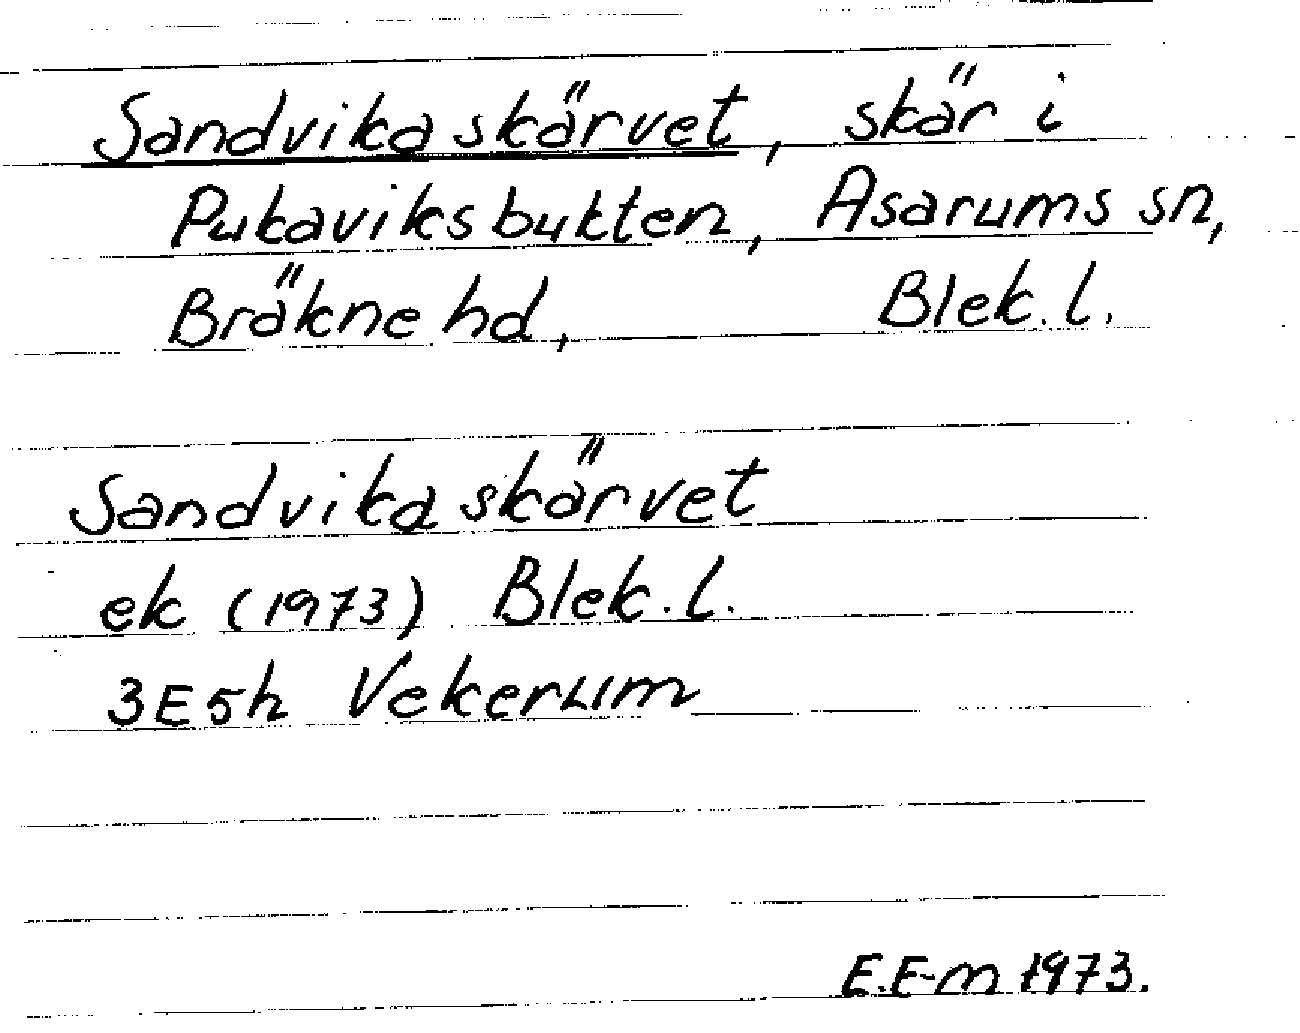 Sandvika skärvet, skär i
Pukaviksbukten, Asarums sn,
Bräkne hd, Blek. l.
Sandvika skärvet
ek (1973) Blek. l.
3E5h Vekerum
E.E-m 1973.